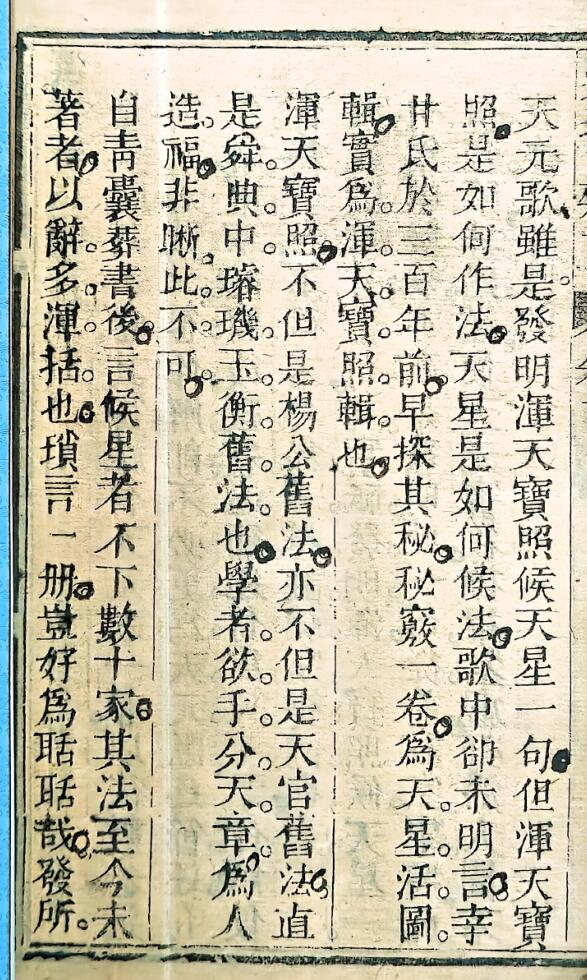 天元歌雖是發明渾天寶照候天星一句但渾天寶
照是如何作法天星是如何候法歌中卻未明言幸
甘氏於三百年前早探其秘秘竅一卷為天星活圖
輯實為渾天寶照輯也
渾天寶照不但是楊公舊法亦不但是天官舊法直
是舜典中璿璣玉衡舊法也學者欲手分天章為人
造福非晰此不可
自青囊葬書後言候星者不下數十家其法至今未
著者以辭多渾括也瑣言一册豈好為聒聒哉發所